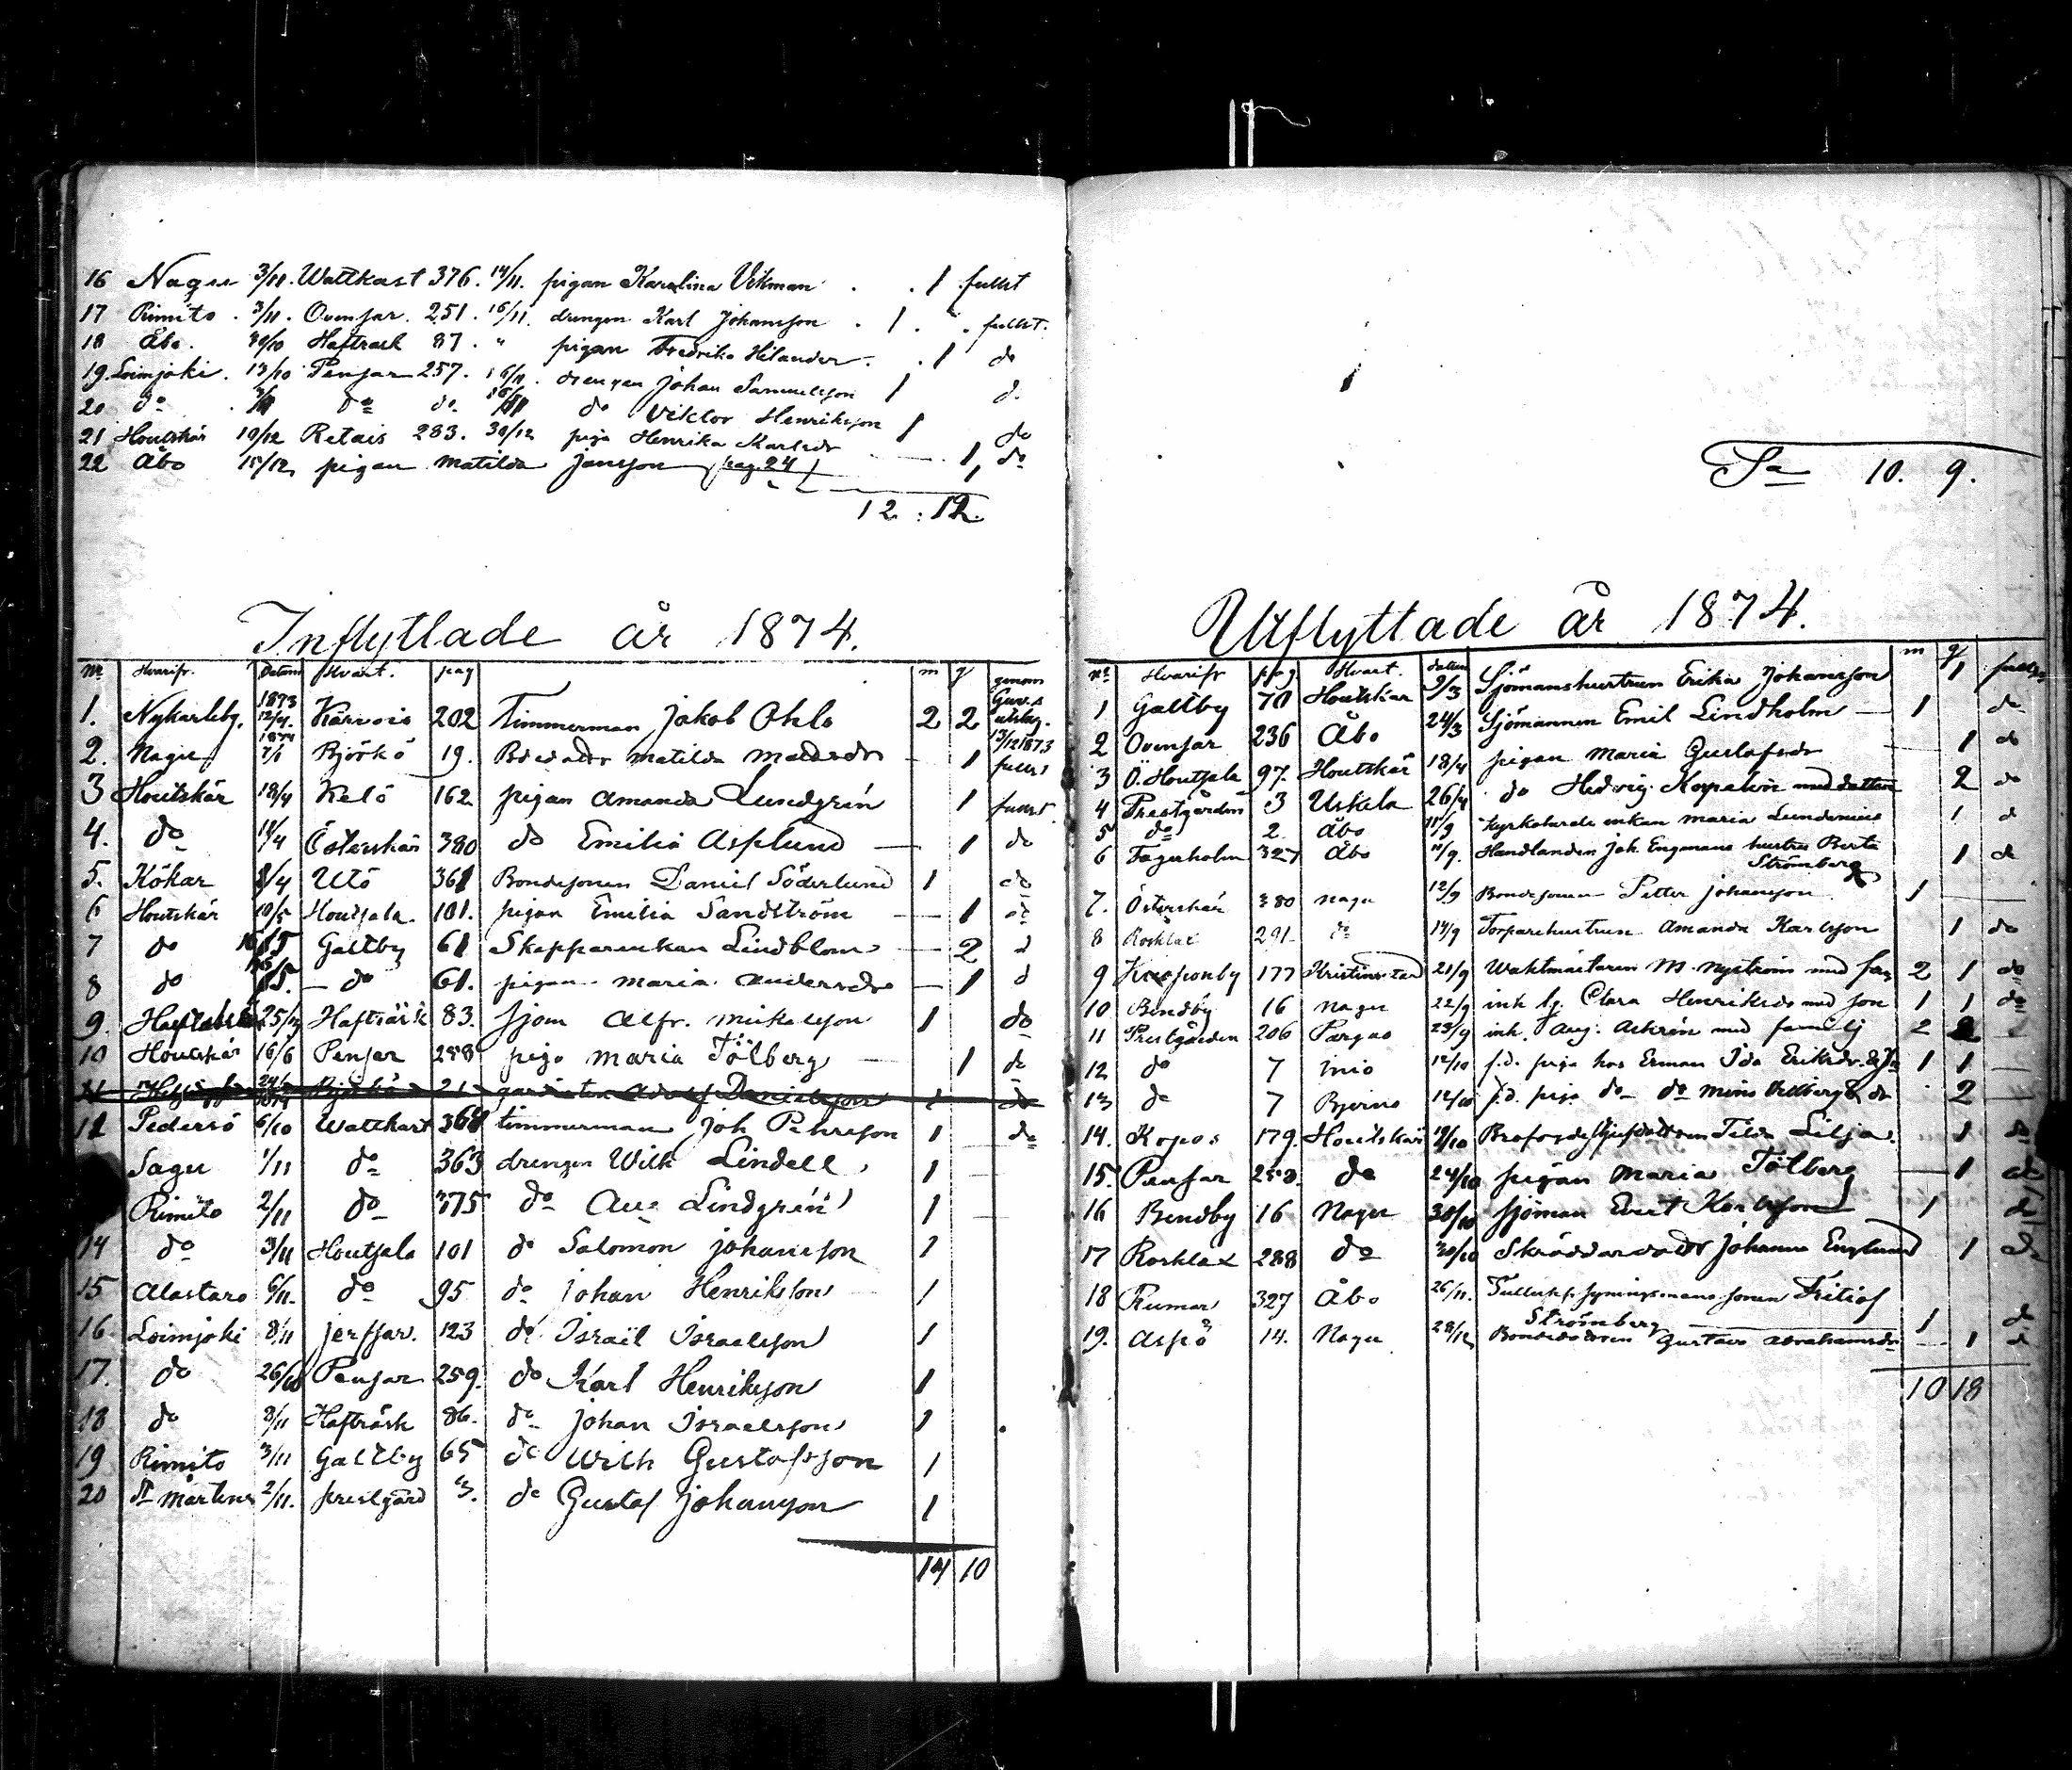 16 Nagu 3/11. Wattkast 376. 14/11. pigan Karolina Vikman . . 1 fullst
17 Rimito . 3/11. Ovensar. 251. 16/11. drengen Karl Johansson . 1 . . fullst.
18 Åbo. 30/10 Haftrask 87. " pigan Fredrika Hilander . 1 do
19. Loimjoki. 13/10 Pensar 257. 16/11. drengen Johan Samuelsson 1 d.
20 do do do. do Viktor Henriksson 1
21 Houtskär 19/12 Retais 283. 30/12 piga Henrika Karlsdr 1, do
22 Åbo 15/12, pigan Matilda Jansson (pag. 24) 1, do
12 : 12.
Inflyttade år 1874.
No. Hvarifr. Datum Hvart. pag m q genom
1. Nykarleby. 1873 12/4. Kärvois 202 Timmerman Jakob Ohls 2 2 Guv.s utslag. 13/12 1873
2. Nagu 1874 7/1 Björkö 19. Matilda Matsdr — 1 fullst
3 Houtskär 18/4 Kelö 162 pigan Amanda Lundgrén 1 fullst.
4. do 14/4 Österskär 380 do Emilia Asplund — 1 do
5. Kökar 8/4 Utö 361 Bondesonen Daniel Söderlund 1 do
6 Houtskär 10/5 Houtsala 101. pigan Emilia Sandström — 1 do
7 do Galtby 61 Skepparenkan Lindblom — 2 d
8 do — do 61. pigan Maria Andersdr — 1 d
9. Haftrask 25/ Hafträsk 83. sjom Alfr. Mickelsson 1 do
10 Houtskär 16/6 Pensar 258 piga Maria Tölberg — 1 do
11 Björkö 21 gardisten Adolf Danielsson 1 do
11 Pedersö 6/10 Wattkast 368 timmerman Joh Pehrsson 1 do
Sagu 1/11 do 363 drengen Wilh Lindell 1
Rimito 2/11 do 375 do Aug Lindgrén 1
14 do 3/11 Houtsala 101 do Salomon Johansson 1
15 Alastaro 6/11. do 95 do Johan Henriksson 1
16. Loimjoki 8/11 Jerssar. 123 do Israël Israelsson 1
17. do 26/10 Pensar 259. do Karl Henriksson 1
18 do 8/11 Hafträsk 86. do Johan Israelsson 1
19 Rimito 3/11 Galtby 65 do Wilh Gustafsson 1
20 St Mårtens 2/11. prestgård 3. do Gustaf Johansson 1
14 10
Sa 10. 9.
Utflyttade år 1874.
No Hvarifr pag Hvart. datum m q
1 Galtby 70 Houtskär 9/3 Sjömanshustrun Erika Johansson 1 fullst
2 Ovensar 236 Åbo 24/3 Sjömannen Emil Lindholm — 1 do
3 Ö. Houtsala 97. Houtskär 18/4 pigan Maria Gustafsdr 1 do
4 Prestgården 3 Uskela 26/4 do Hedvig med dotter 2 do
5 do 2 Åbo 11/9 enkan Maria Lundenius 1 d
6 Fagerholm 327 Åbo 10/9. Handlanden Joh. Engmans hustru Berta Strömberg 1 do
7. Österskär 380 Nagu 12/9 Bondesonen Petter Johansson 1 —
8 Rosklax 291 do 14/9 Torparehustrun Amanda Karlsson 1 do
9 Korsponby 177 Kristinestad 21/9 Waktmästaren M. Nyström med fam 2 1 do
10 Bendby 16 Nagu 22/9 inh. Clara Henriksdr med son 1 1 do
11 Prestgården 206 Pargas 23/9 inh. Aug. Achrén med familj 2 2
12 do 7 Inio 12/10 f.d. piga hos Erman Ida Eriksdr 1 1 —
13 do 7 Bjerno 12/10 f.d. piga do do Mina 2 —
14. Kopos 179. Houtskär 19/10 Tilda Lilja. 1 do
15. Pensar 258. do 24/10 pigan Maria Tölberg — 1 do
16 Bendby 16 Nagu 30/10 sjöman Evert Karlsson 1 d
17 Rosklax 288 do 30/10 Skräddaredotr Johanna Englund 1 do
18 Rumar 327 Åbo 26/11. sonen Fritiof Strömberg 1 d
19. Aspö 14. Nagu 28/12 Gustava Abrahamsdr — 1 d
10 18